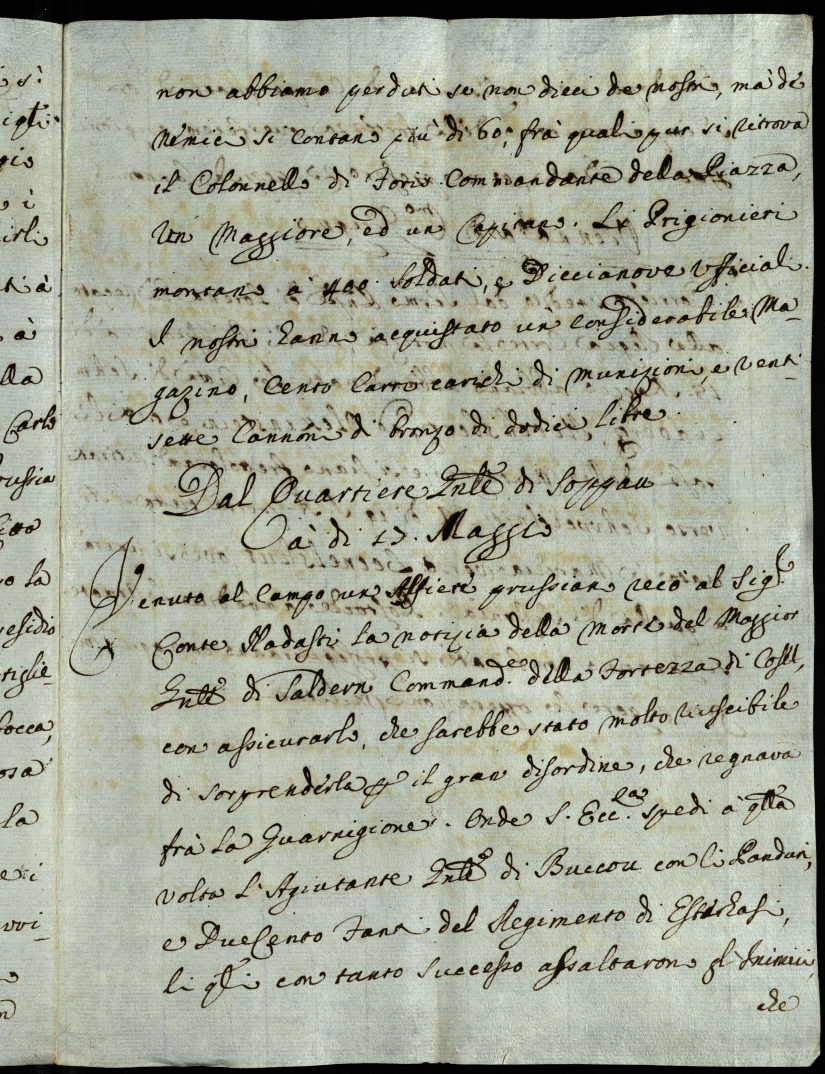 non abbiamo perduti se non dieci de nostri, mà de
Nemici si contano più di 60, frà quali pur si ritrova
il Colonnello di Foris Commandante della Piazza,
un Maggiore, ed un Capitano. Li Prigionieri
montano à 400 Soldati, e Diccianove Ufficiali.
I nostri hanno acquistato un considerabile Ma-
gazino, Cento Carri carichi di munizioni, e venti
sette Cannoni di bronzo di dodici libre.
Dal Quartiere Gnlẽ di Soppau
à di 27. Maggio
Venuto al Campo un Alfiere prussiano recò al Sig.r
Conte Nadasti la notizia della morte del Maggior
Gnlẽ di Saldern Command.e della Fortezza di Cosel,
con assicurarlo, che sarebbe stato molto riuscibile
di sorprenderla p il gran disordine, che regnava
frà la Guarnigione. Onde S. Ecc.za spedì à qlla
volta l'Agiutante Gnlẽ di Buccou con li Panduri,
e Duecento Fanti del Regimento di Esterhasi,
li qli con tanto successo assaltarono gl'Inimici,
che
sì
à
à
lla
Carlo
russia
vo la
esidio
rtiglie-
rocca,
osa
la
e i
vvi-